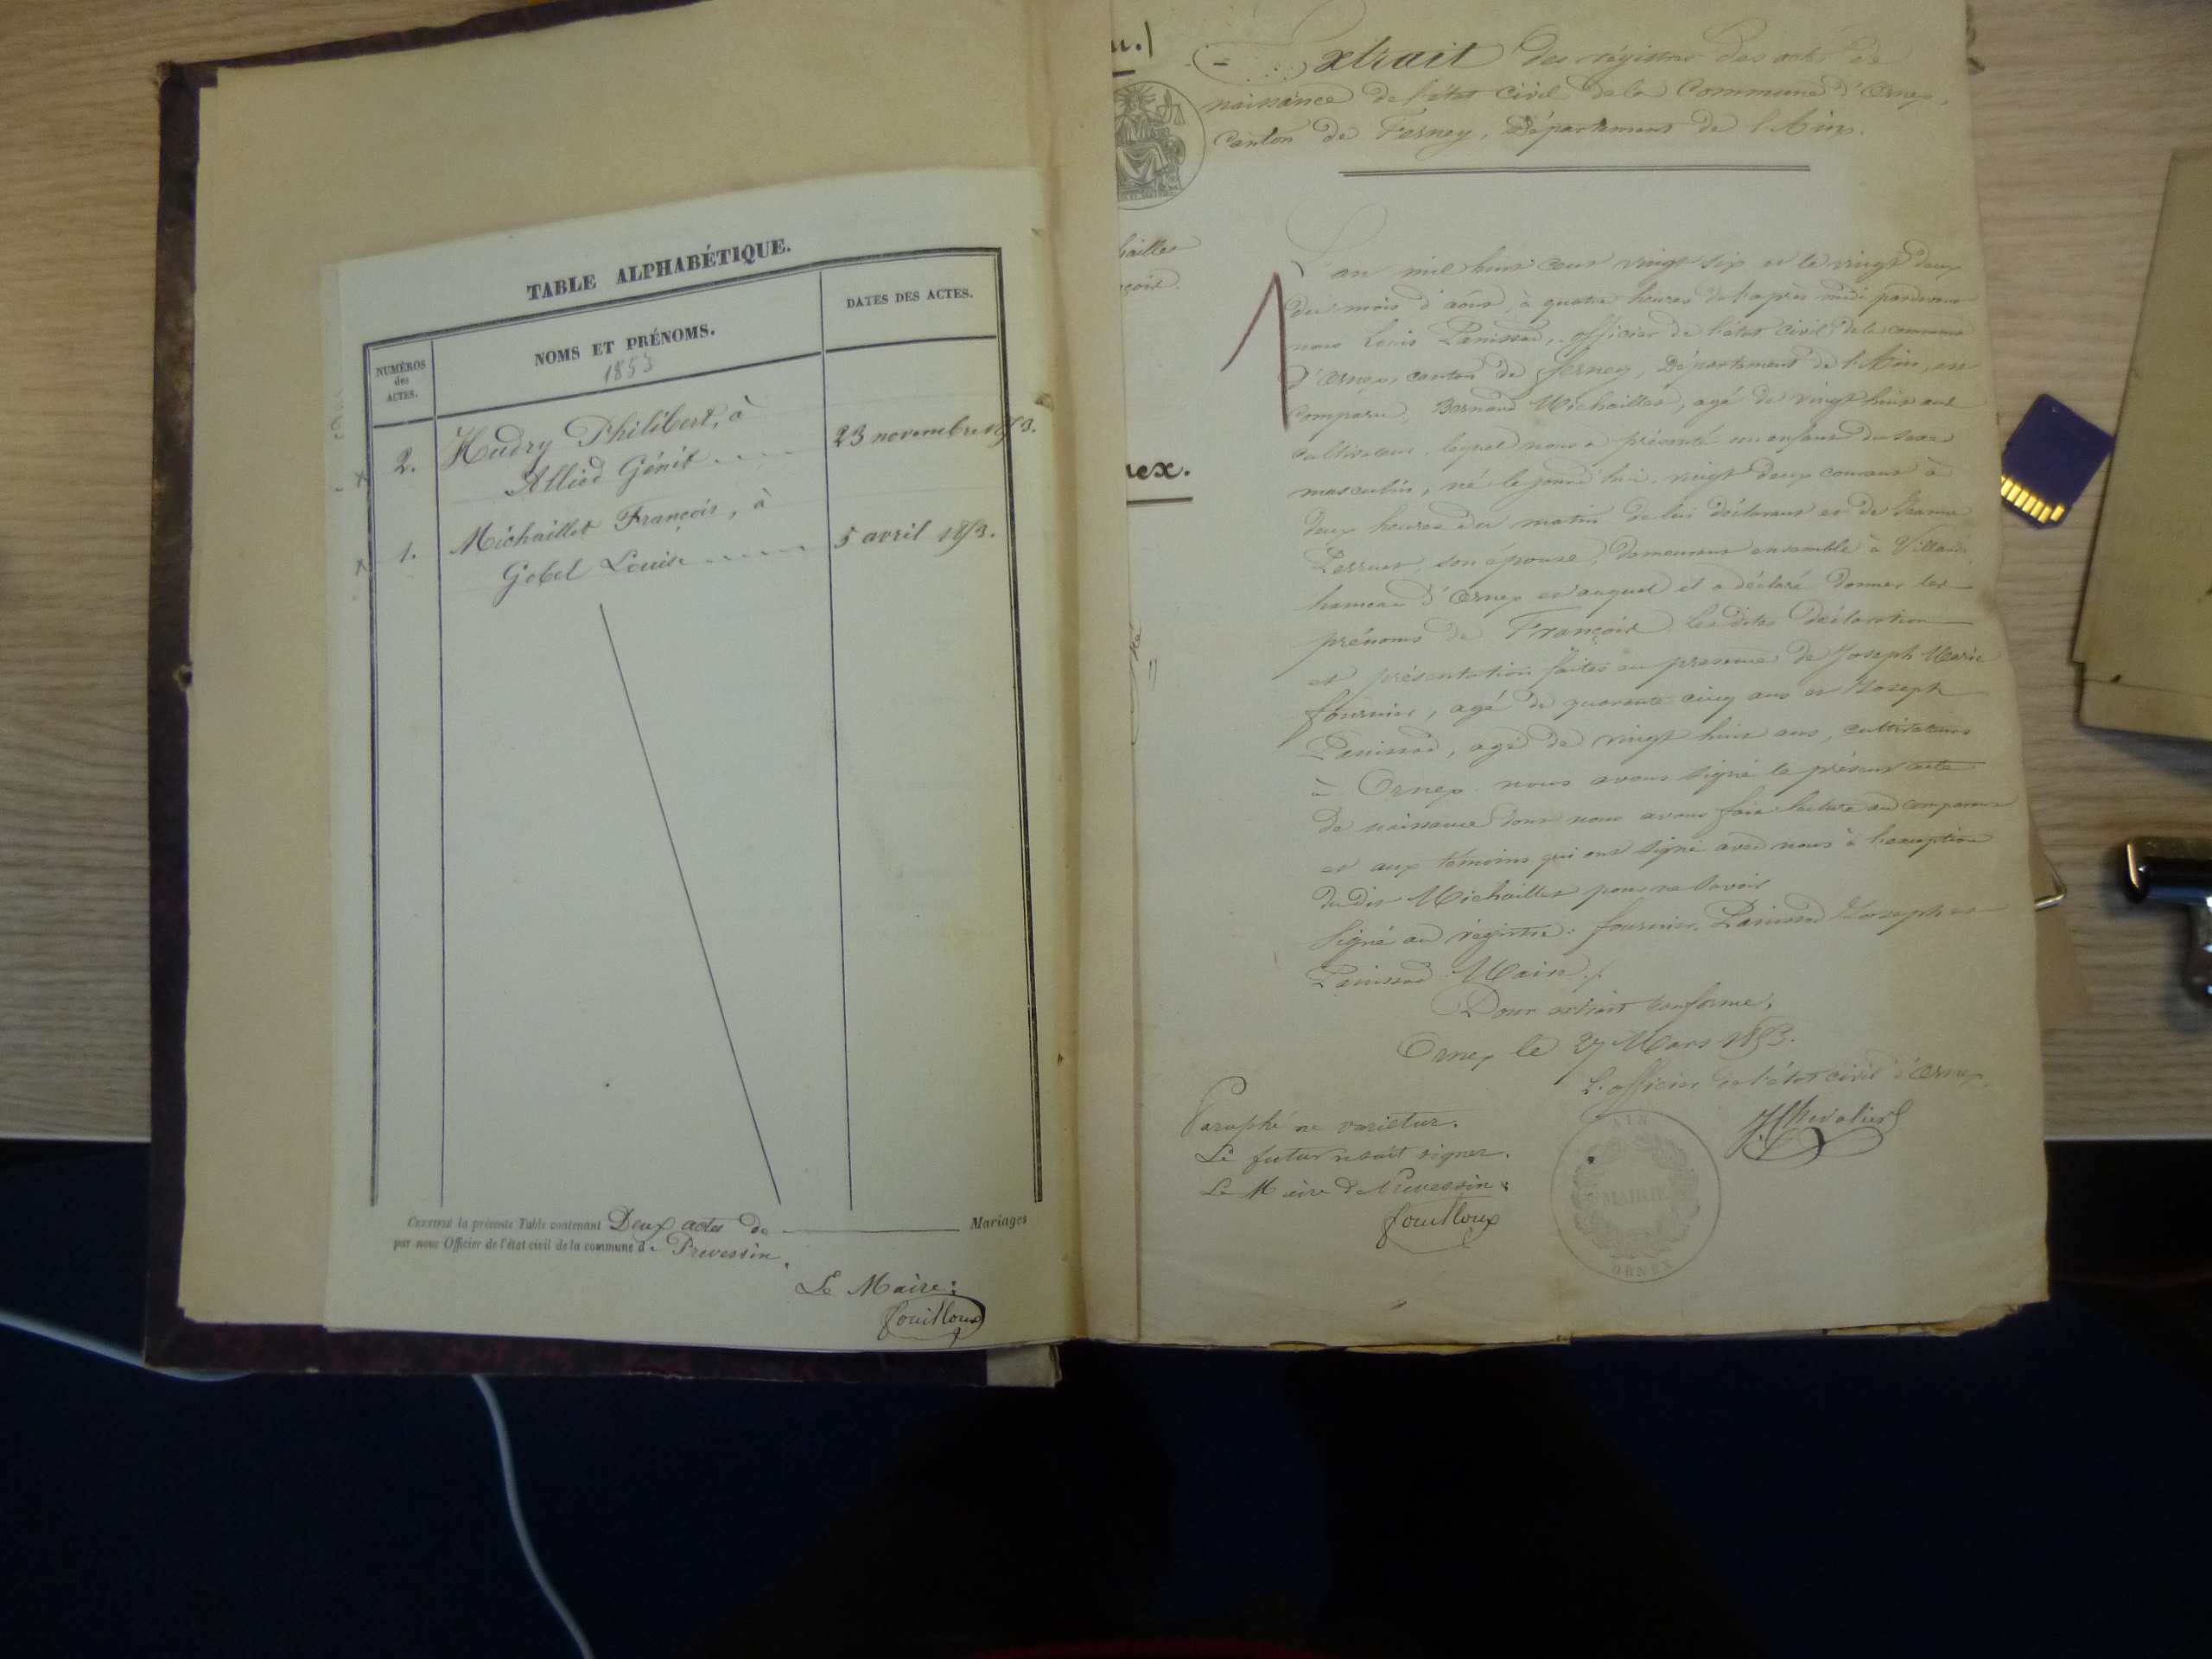 TABLE ALPHABÉTIQUE.
NUMÉROS
des
ACTES.
NOMS ET PRÉNOMS.
1853
DATES DES ACTES.
2.
Hudry Philibert, à
Alliod Génie
23 novembre 1853.
1.
Michaillet François, à
Gobel Louise
5 avril 1853.
CERTIFIÉ la présente Table contenant Deux actes de Mariages
par nous Officier de l'état civil de la commune de Prevessin.
Le Maire:
fouilloux
nex.
Extrait des régistres des actes de
naissance de l'état civil de la Commune d'Ornex,
Canton de Ferney, Département de l'Ain.
L'an mil huit cent vingt six et le vingt deux
du mois d'aôut, à quatre heures de l'après midi pardevant
nous Louis Panissod, officier de l'état civil de la commune
d'Ornex, canton de Ferney, Département de l'Ain, est
comparu, Bernard Michaillet, agé de vingt huit ans
cultivateur, lequel nous a présenté un enfant du sexe
masculin, né le jourd'hui vingt deux courant à
deux heures du matin de lui déclarant et de Jeanne
son épouse, demeurant ensemble à Villard,
hameau d'Ornex et auquel il a déclaré donner les
prénoms de François. Les dites déclaration
et présentation faites en présence de Joseph Marie
fournier, agé de quarante cinq ans et Joseph
Panissod, agé de vingt huit ans, cultivateurs
à Ornex nous avons signé le présent acte
de naissance dont nous avons fait lecture au comparant
et aux témoins qui ont signé avec nous à l'exception
du dit Michaillet pour ne savoir
Signé au régistre: fournier, Panissod Joseph et
Panissod Maire./.
Pour extrait conforme,
Ornex le 27 Mars 1853.
L'officier de l'état civil d'Ornex,
JChevalier
Paraphé ne varietur.
Le futur ne sait signer.
Le Maire de Prevessin:
fouilloux
AIN
MAIRIE
ORNEX